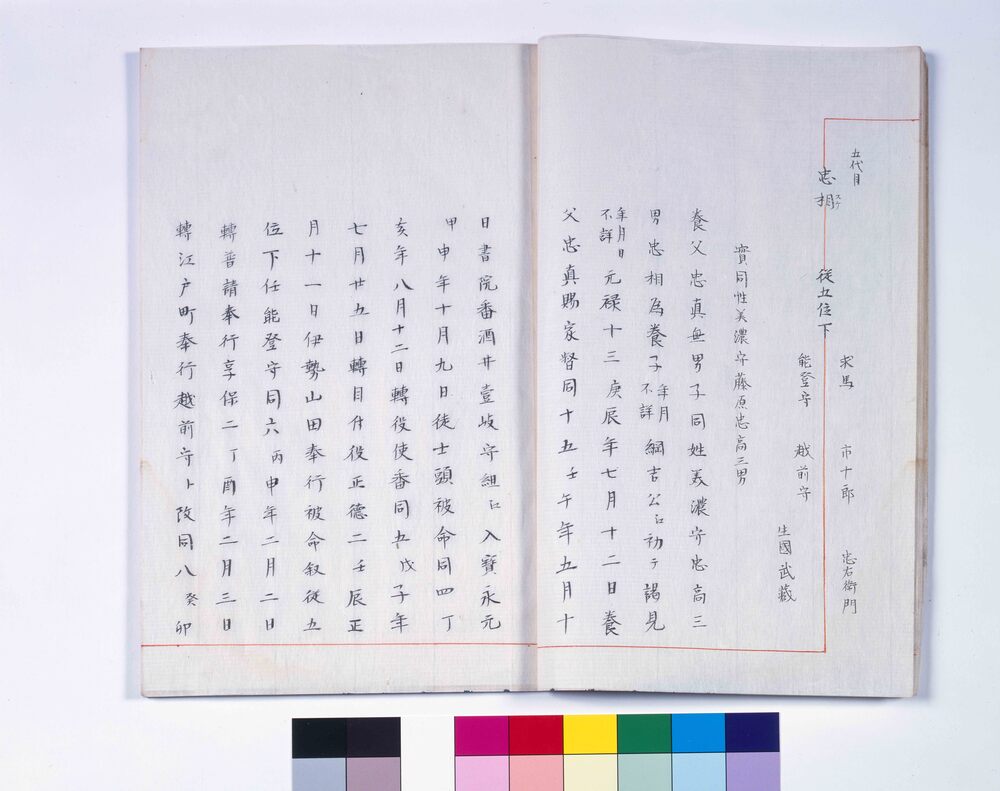 五代目
忠相スケ 従五位下
求馬 市十郎 忠右衛門
能登守 越前守
生國武蔵
實同性美濃守藤原忠高三男
養父忠真無男子同姓美濃守忠高三
男忠相為養子年月不詳綱吉公江初テ謁見
年月日不詳元禄十三庚辰年七月十二日養
父忠真賜家督同十五壬午年五月十
日書院番酒井壹岐守組江入寶永元
甲申年十月九日徒士頭被命同四丁
亥年八月十二日轉役使番同五戊子年
七月廿五日轉目付役正徳二壬辰正
月十一日伊勢山田奉行被命叙従五
位下任能登守同六丙申年二月二日
轉普請奉行享保二丁酉年二月三日
轉江戸町奉行越前守ト改同八癸卯